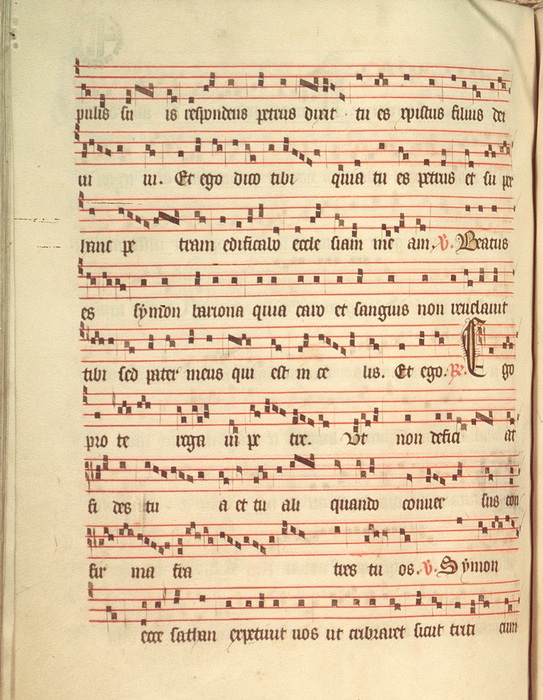 pulis su is respondens petrus dixit tu es xpistus filius dei
ui ui. Et ego dico tibi quia tu es petrus et su per
hanc pe tram edificabo eccle siam me am. V. Beatus
es symon bariona quia caro et sanguis non reuelauit
tibi sed pater meus qui est in ce lis. Et ego. R. E go
pro te roga ui pe tre. Vt non defici at
fi des tu a et tu ali quando conuer sus con
fir ma fra tres tu os. V. Symon
ecce sathan expetiuit uos ut cribraret sicut triti cum